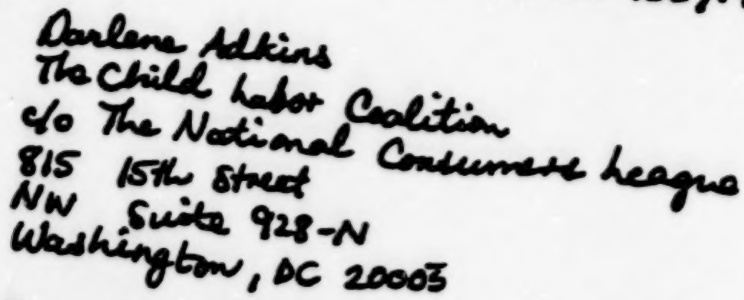 Darlene Adkins
The Child Labor Coalition
c/o The National Consumers League
815 15th Street
NW Suite 928-N
Washington, DC 20005